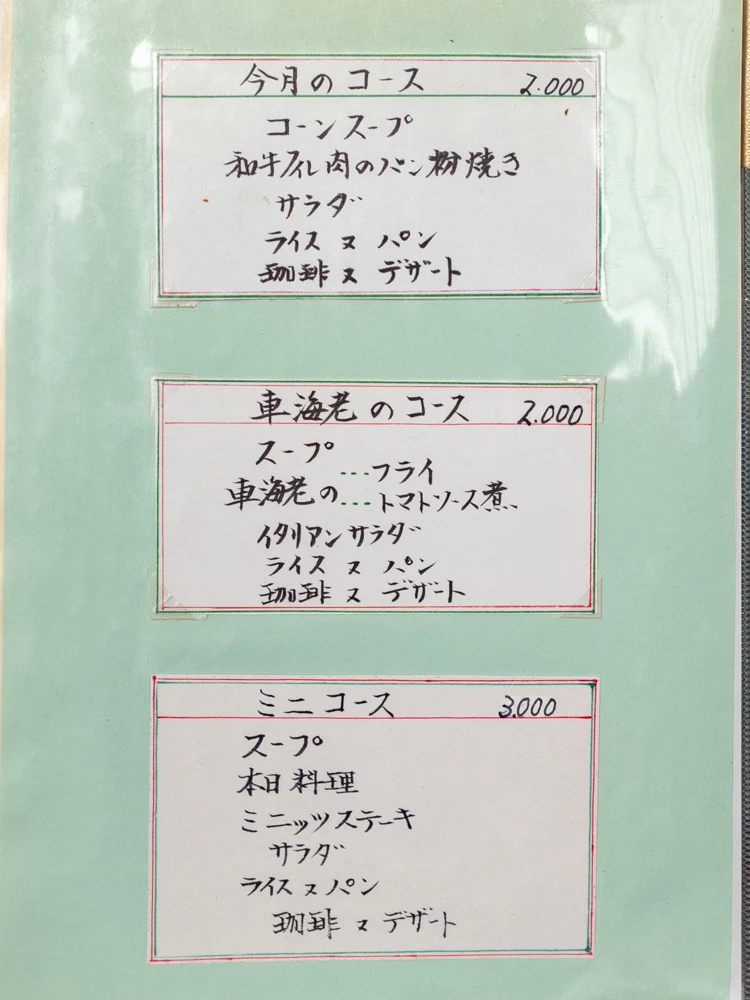 今月のコース 2.000
コーンスープ
和牛フィレ肉のパン粉焼き
サラダ
ライス又パン
珈琲又デザート
車海老のコース 2.000
スープ
車海老の
---フライ
---トマトソース煮
イタリアンサラダ
ライス又パン
珈琲又デザート
ミニコース 3.000
スープ
本日料理
ミニッツステーキ
サラダ
ライス又パン
珈琲又デザート